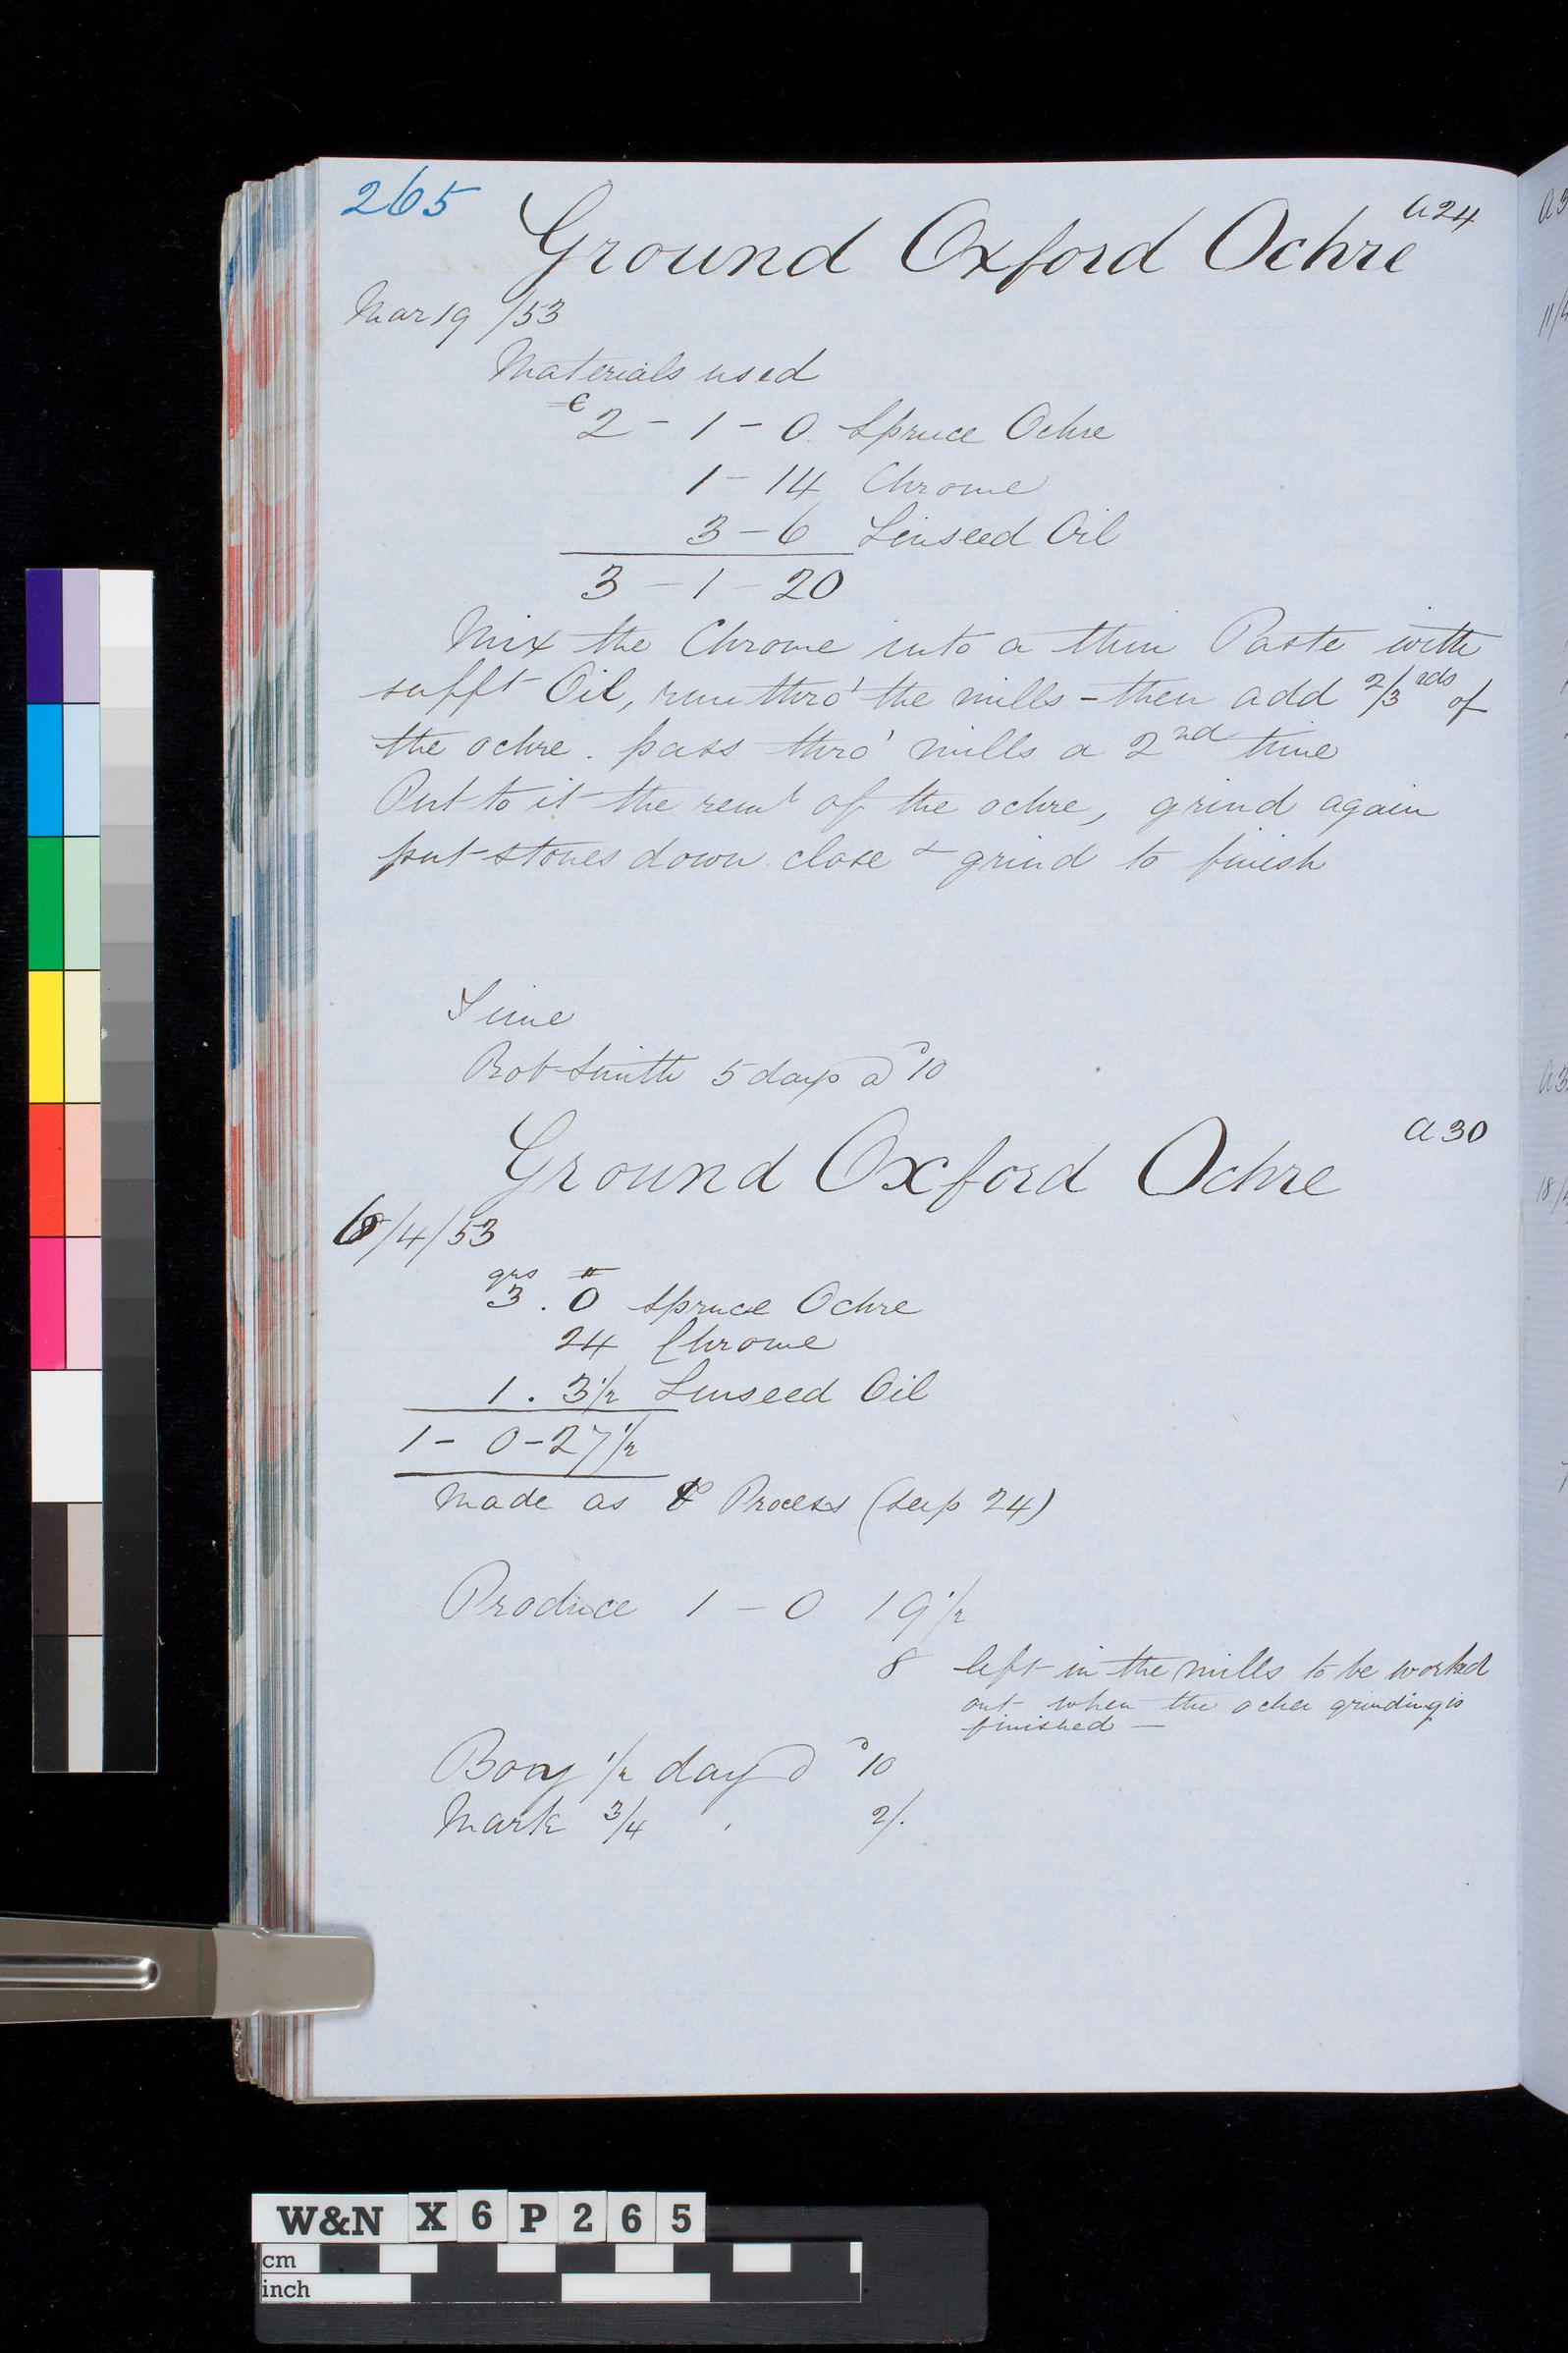 265
Ground Oxford Ochre a24
Mar 19 /53
Materials used
c
2 - 1 - 0 Spruce Ochre
1 - 14 Chrome
3 - 6 Linseed Oil
3 - 1 - 20
Mix the Chrome into a thin Paste with
sufft Oil, run thro' the mills - then add 2/3rds of
the ochre. pass thro' mills a 2nd time
Put to it the remt of the ochre, grind again
put stones down close & grind to finish
Time
Rob Smith 5 days @ 10
Ground Oxford Ochre a30
/4/53
qrs #
3 . 0 Spruce Ochre
24 Chrome
1 . 3 1/2 Linseed Oil
1 - 0 - 27 1/2
Made as Process (see p 24)
Produce 1 - 0 19 1/2
8 left in the mills to be worked
out when the ocher grinding is
finished —
1/2 day 10
Mark 3/4 2/.
W&N X 6 P 2 6 5
cm
inch